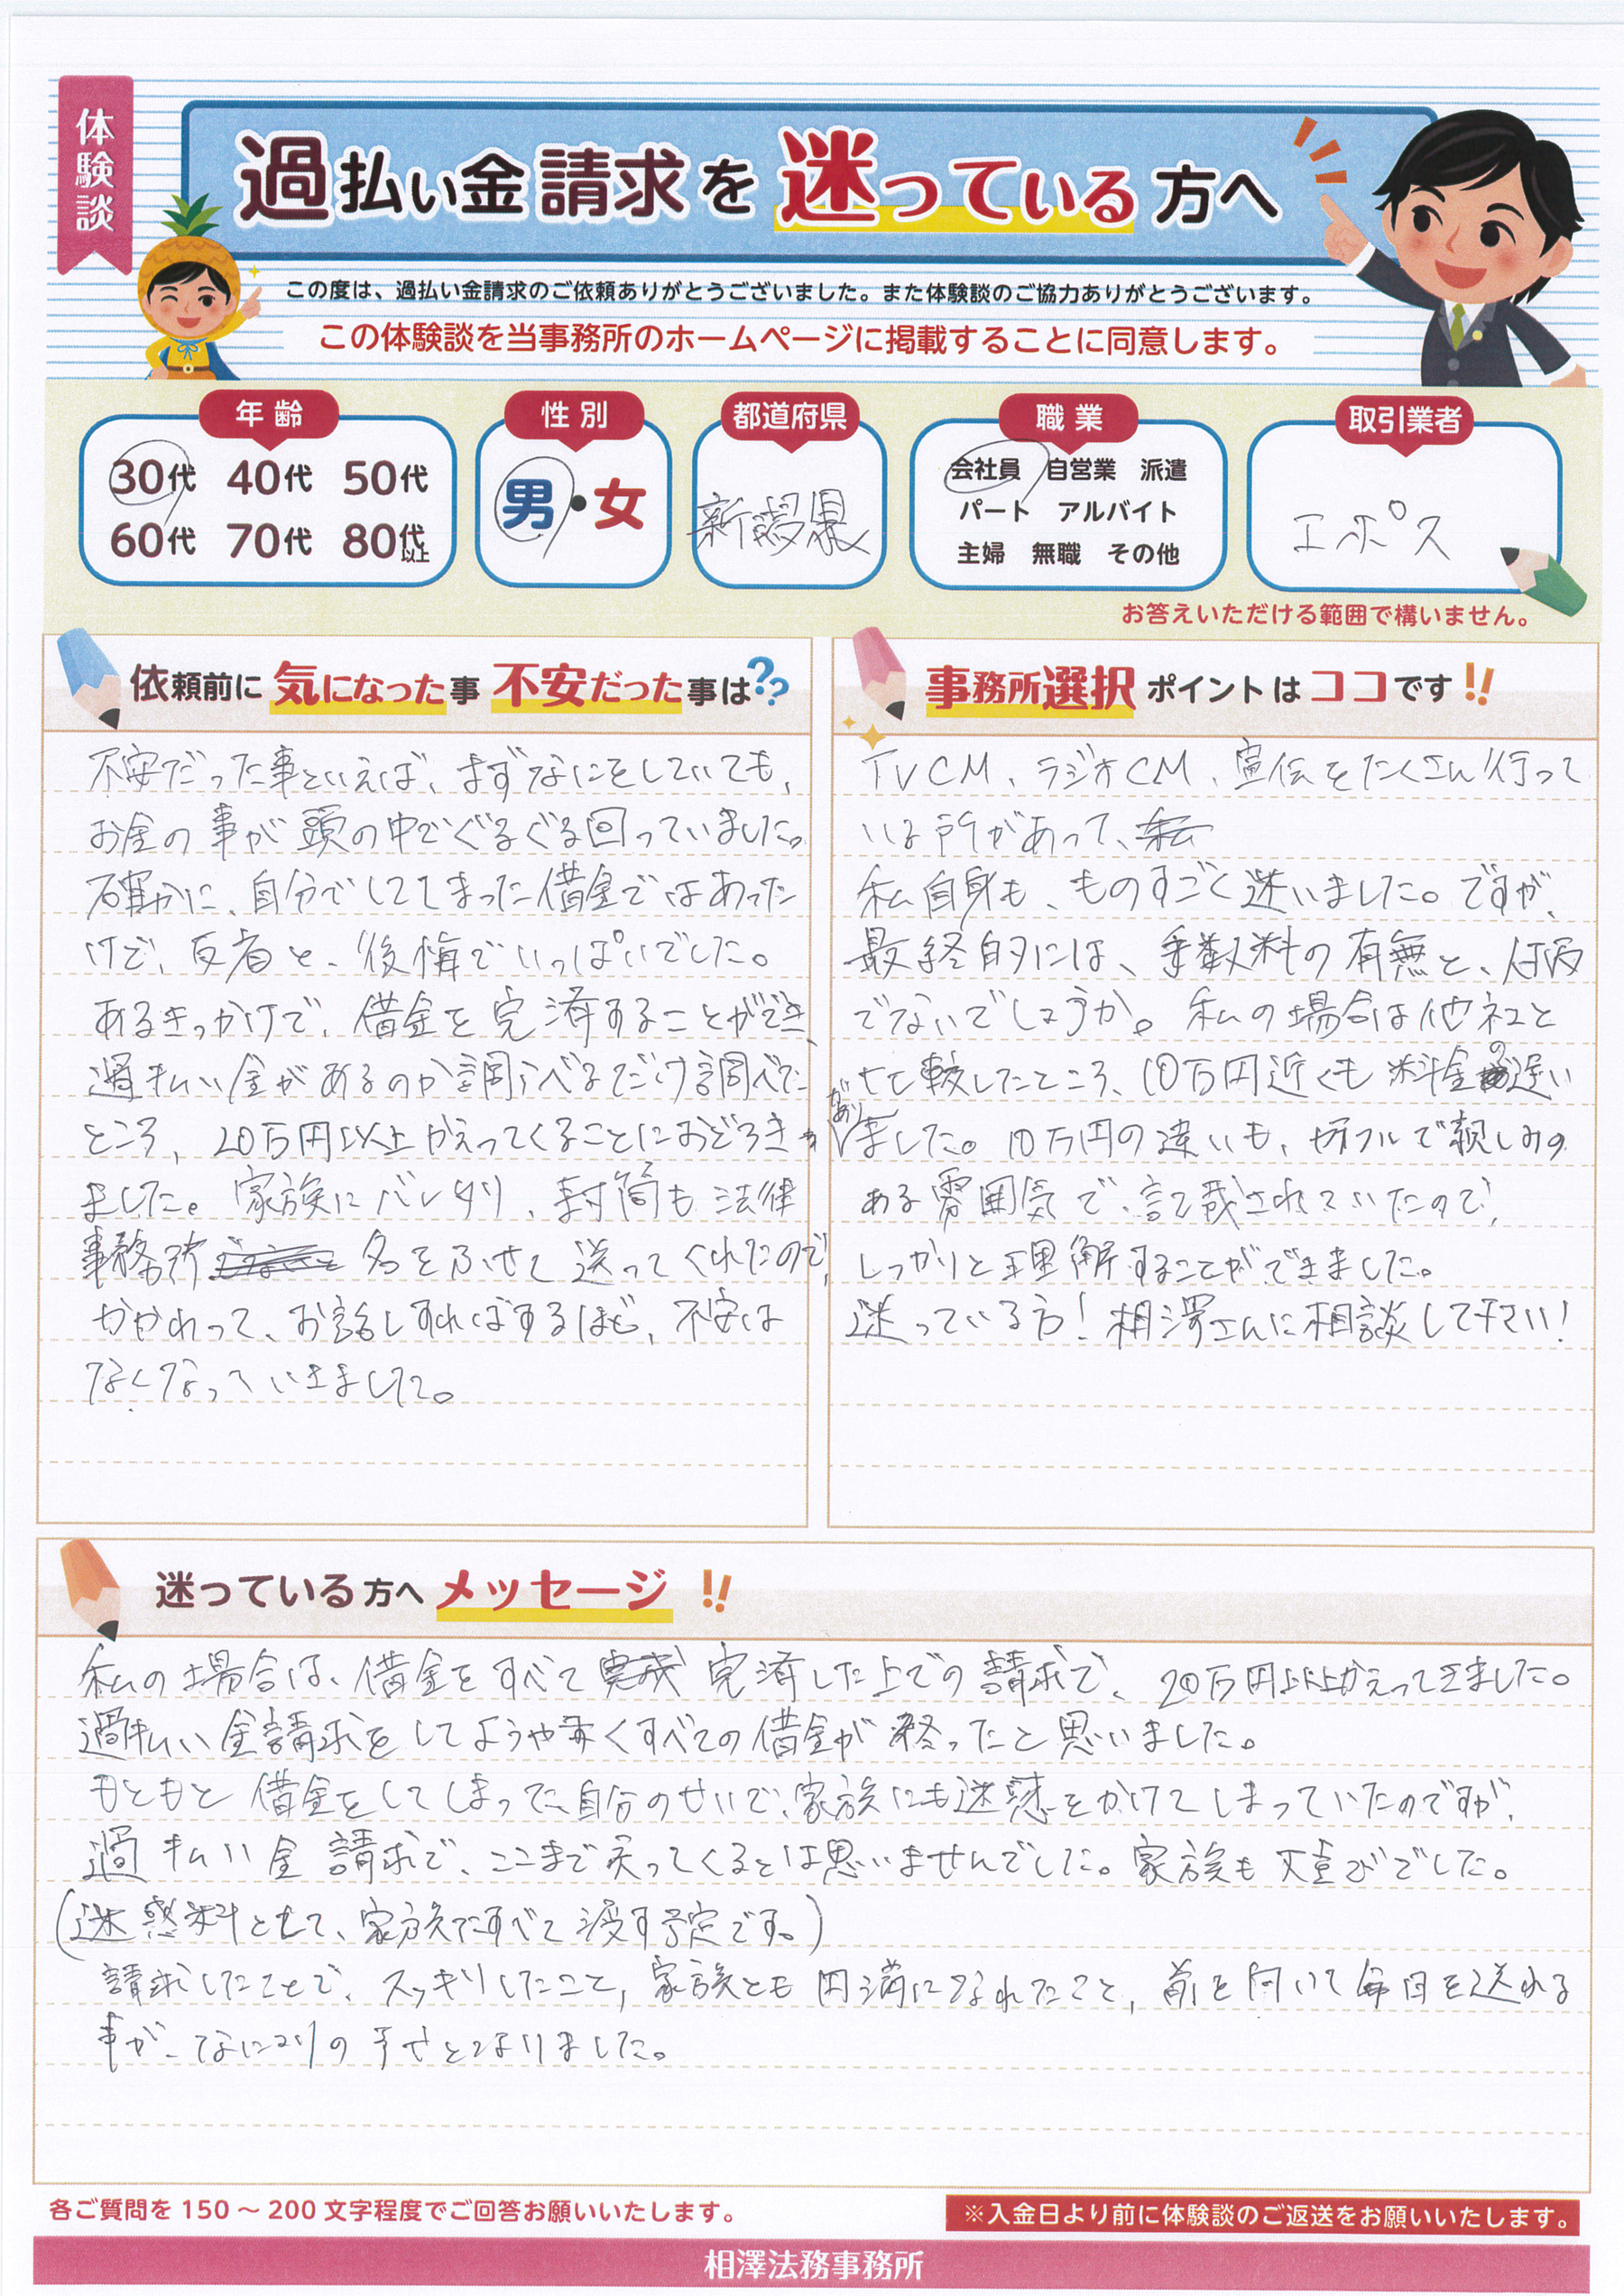 体験談
過払い金請求を迷っている方へ
この度は、過払い金請求のご依頼ありがとうございました。また体験談のご協力ありがとうございます。
この体験談を当事務所のホームページに掲載することに同意します。
年齢
30代 40代 50代
60代 70代 80代以上
性別
男・女
都道府県
新潟県
職業
会社員 自営業 派遣
パート アルバイト
主婦 無職 その他
取引業者
エポス
お答えいただける範囲で構いません。
依頼前に気になった事 不安だった事は??
不安だった事といえば、まずなにをしていても、
お金の事が頭の中でぐるぐる回っていました。
確かに、自分でしてしまった借金ではあった
けど、反省と、後悔でいっぱいでした。
あるきっかけで、借金を完済することができ、
過払い金があるのか調べるだけ調べた
ところ、20万円以上かえってくることにおどろき
ました。家族にバレ、封筒も法律
事務所 名をふせて送ってくれたので、
かかわって、お話しすればするほど、不安は
なくなっていきました。
事務所選択ポイントはココです!!
TVCM、ラジオCM、宣伝をたくさん行って
いる所があって、
私自身も、ものすごく迷いました。ですが、
最終的には、手数料の有無と、対応
でないでしょうか。私の場合は他社と
比較したところ、10万円近くも料金の違い
がありました。10万円の違いも、切フルで親しみの
ある雰囲気で、記載されていたので、
しっかりと理解することができました。
迷っている方!相澤さんに相談して下さい!
迷っている方へメッセージ!!
私の場合は、借金をすべて 完済した上での請求で、20万円以上かえってきました。
過払い金請求をしてようやくすべての借金が終ったと思いました。
もともと借金をしてしまった自分のせいで、家族にも迷惑をかけてしまっていたのですが、
過払い金請求で、ここまで戻ってくるとは思いませんでした。家族も大喜びでした。
(迷惑料として、家族にすべて渡す予定です。)
請求したことで、スッキリしたこと、家族とも円満になれたこと、前を向いて毎日を送れる
事が、なによりの幸せとなりました。
各ご質問を150〜200文字程度でご回答お願いいたします。
※入金日より前に体験談のご返送をお願いいたします。
相澤法務事務所